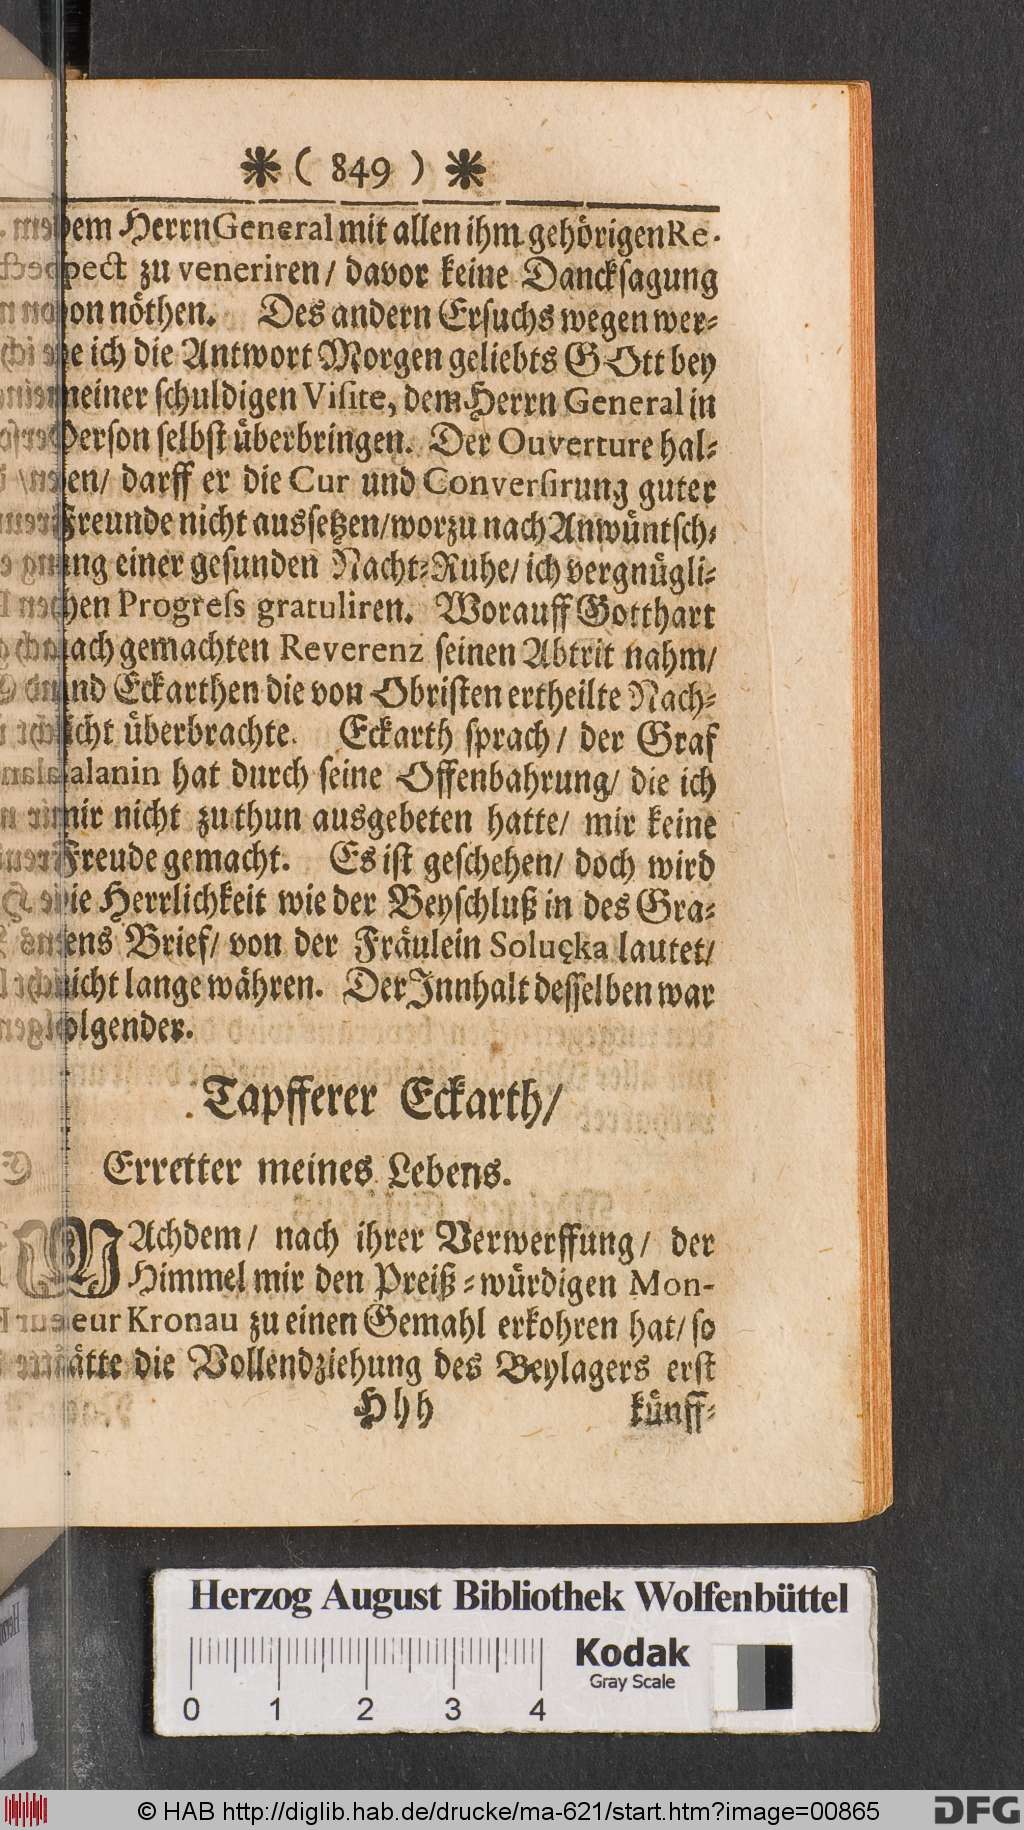 * ( 849 ) *
dem Herrn General mit allen ihm gehörigen Re-
spect zu veneriren/ davor keine Dancksagung
von nöthen. Des andern Ersuchs wegen wer-
de ich die Antwort Morgen geliebts GOtt bey
meiner schuldigen Visite, dem Herrn General in
Person selbst überbringen. Der Ouverture hal-
ben/ darff er die Cur und Conversirung guter
Freunde nicht aussetzen/ worzu nach Anwüntsch-
ung einer gesunden Nacht-Ruhe/ ich vergnügli-
chen Progress gratuliren. Worauff Gotthart
nach gemachten Reverenz seinen Abtrit nahm/
und Eckarthen die von Obristen ertheilte Nach-
richt überbrachte. Eckarth sprach/ der Graf
alanin hat durch seine Offenbahrung/ die ich
mir nicht zu thun ausgebeten hatte/ mir keine
Freude gemacht. Es ist geschehen/ doch wird
die Herrlichkeit wie der Beyschluß in des Gra-
fens Brief/ von der Fräulein Soluçka lautet/
nicht lange währen. Der Innhalt desselben war
folgender.
Tapfferer Eckarth/
Erretter meines Lebens.
NAchdem/ nach ihrer Verwerffung/ der
Himmel mir den Preiß-würdigen Mon-
sieur Kronau zu einen Gemahl erkohren hat/ so
hätte die Vollendziehung des Beylagers erst
Hhh künff-
Herzog August Bibliothek Wolfenbüttel
Kodak
Gray Scale
0 1 2 3 4
© HAB http://diglib.hab.de/drucke/ma-621/start.htm?image=00865
DFG